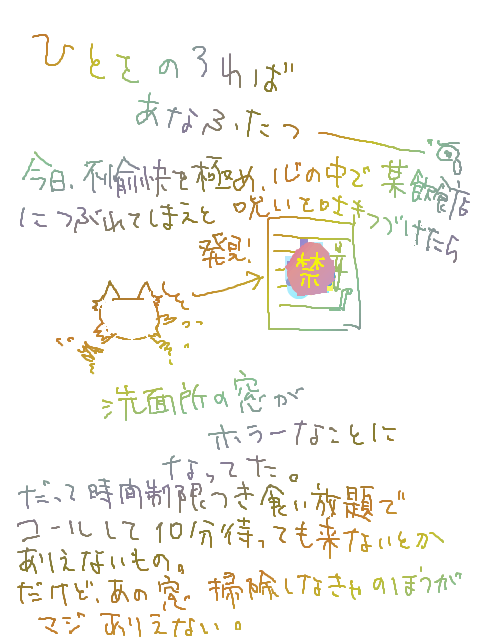 ひとをのろわば
あなふたつ
今日、不愉快を極め、心の中で某飲食店
につぶれてしまえと呪いを吐きつづけたら
発見!
禁
洗面所の窓が
ホラーなことに
なってた。
だって時間制限つき食い放題で
コールして10分待っても来ないとか
ありえないもの。
だけど、あの窓 掃除しなきゃのほうが
マジありえない。